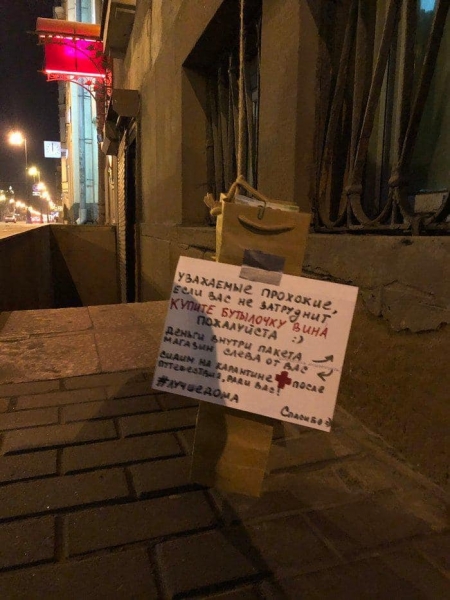 УВАЖАЕМЫЕ ПРОХОЖИЕ,
ЕСЛИ ВАС НЕ ЗАТРУДНИТ
КУПИТЕ БУТЫЛОЧКУ ВИНА
ПОЖАЛУЙСТА :)
ДЕНЬГИ ВНУТРИ ПАКЕТА
МАГАЗИН СЛЕВА ОТ ВАС
СИДИМ НА КАРАНТИНЕ ПОСЛЕ
ПУТЕШЕСТВИЯ, РАДИ ВАС!
#ЛУЧШЕДОМА
СПАСИБО